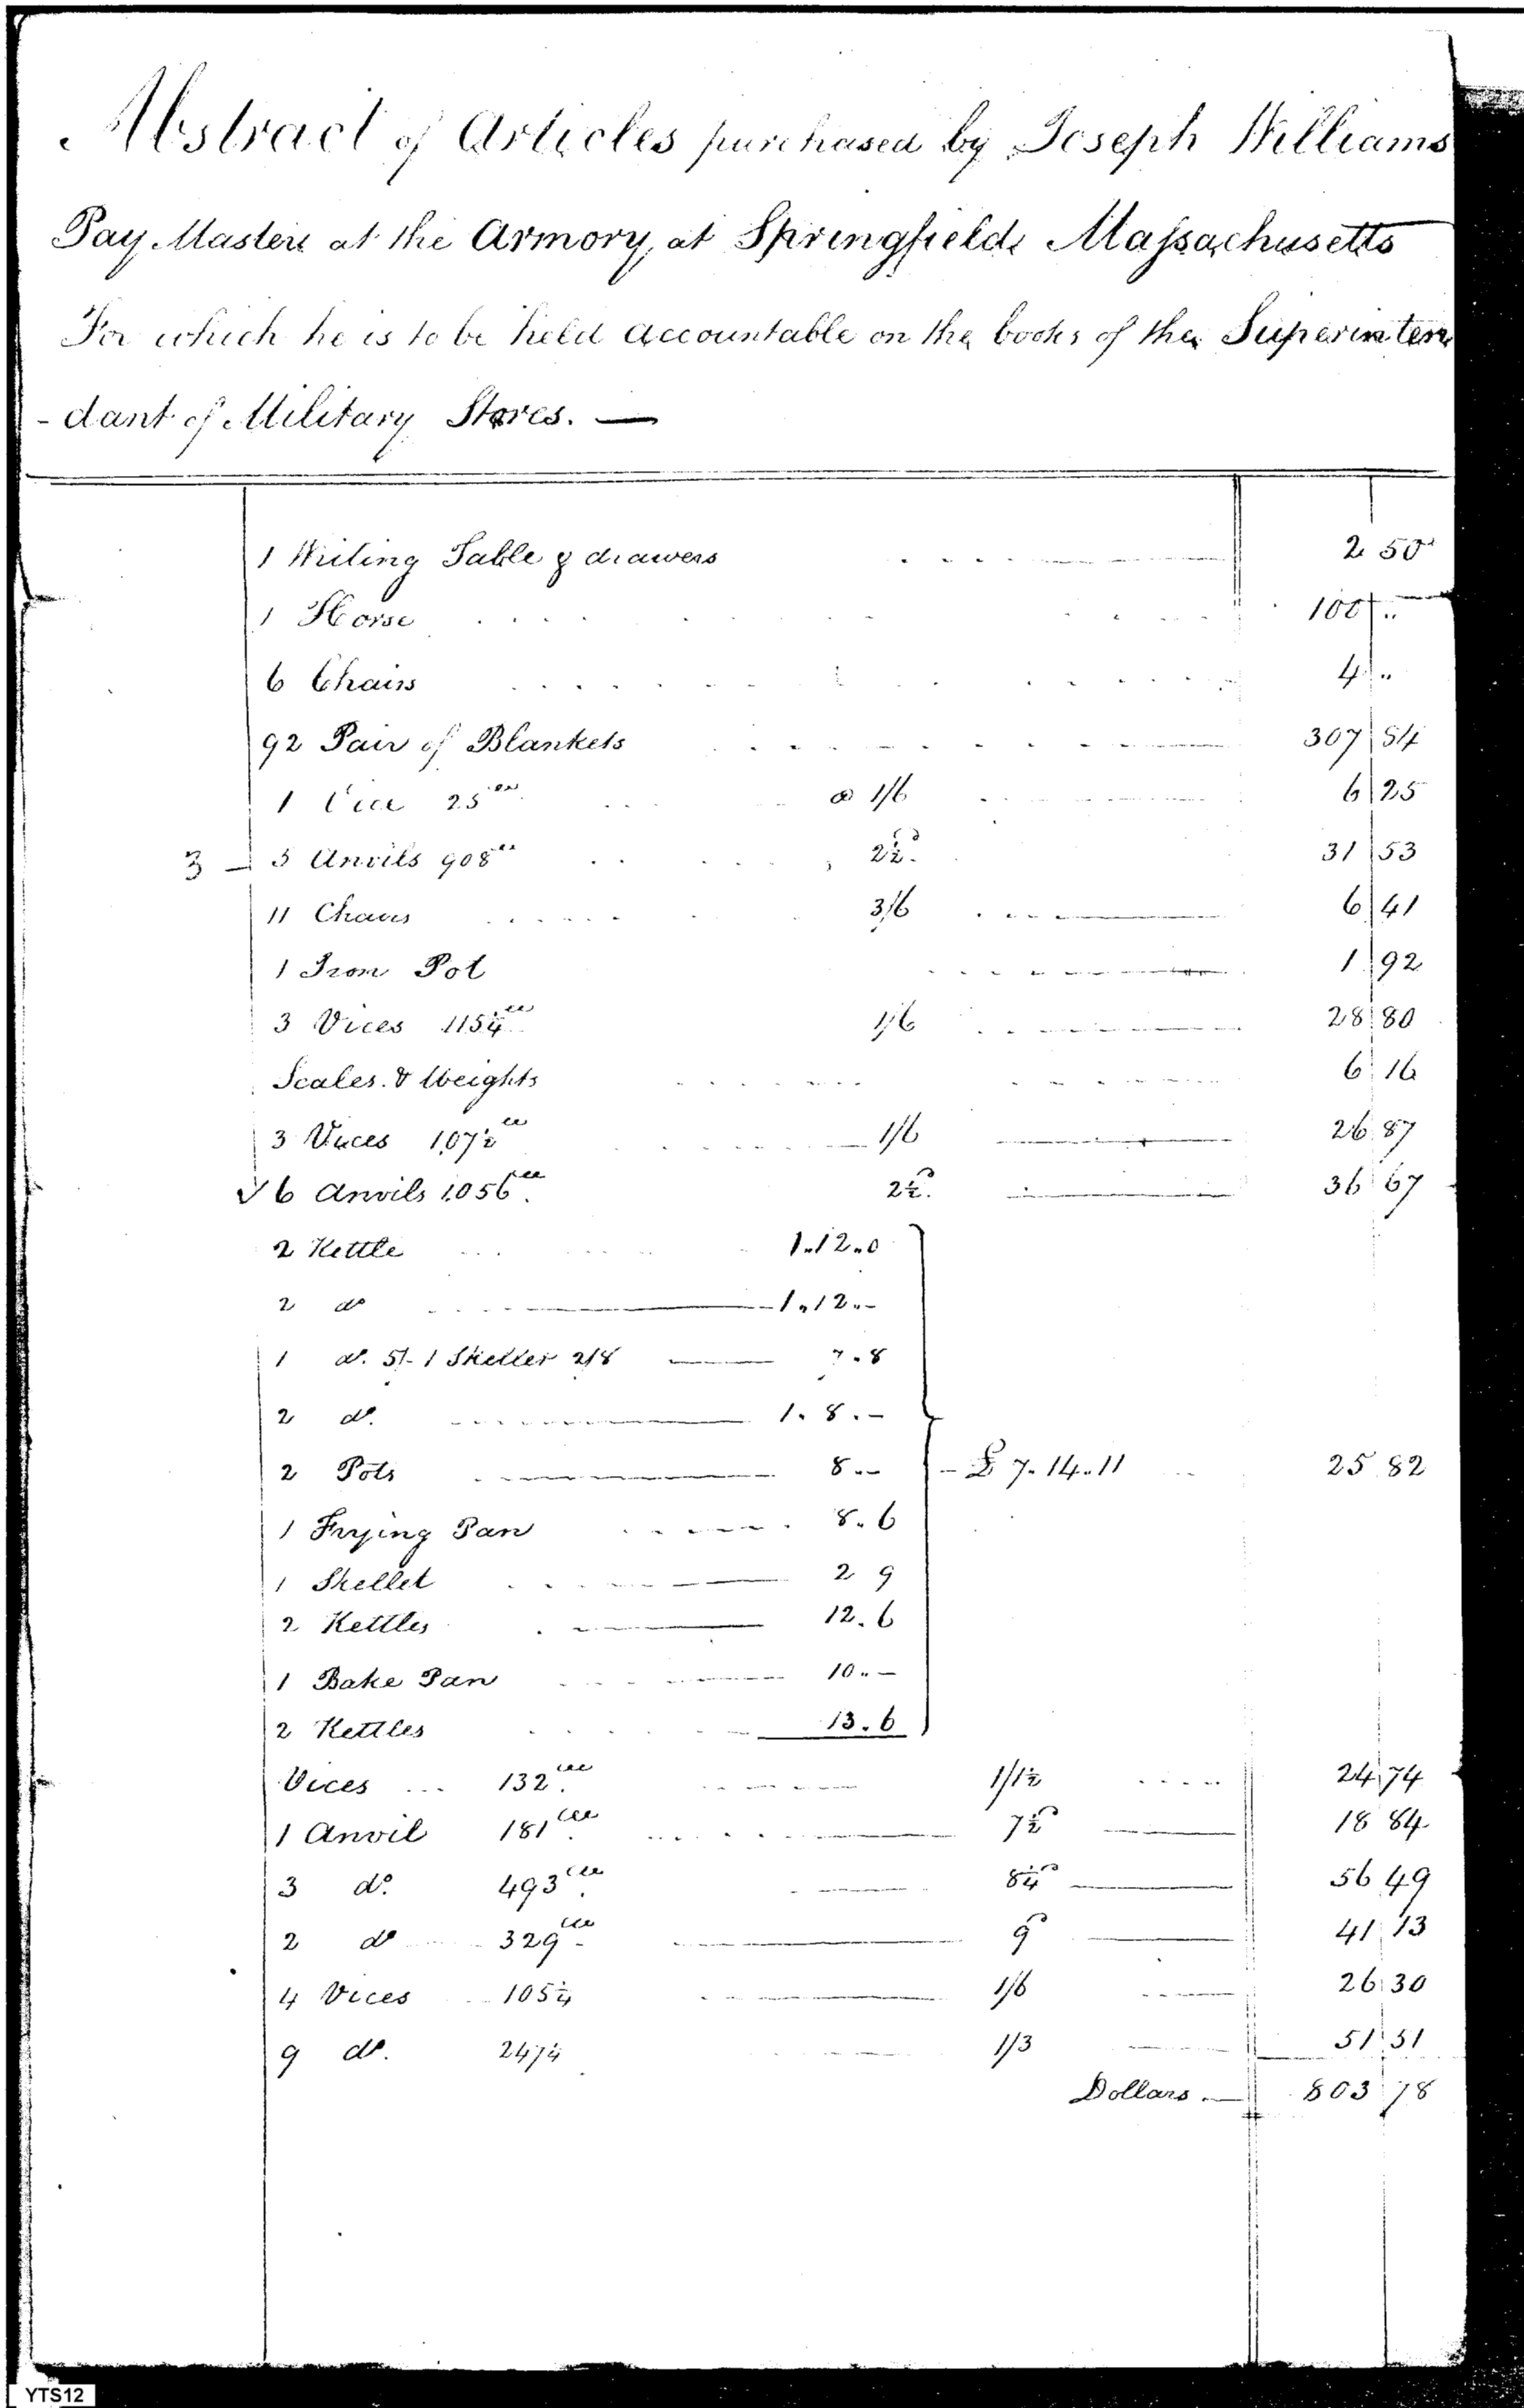 Abstract of Articles purchased by Joseph Williams
Pay Master at the Armory, at Springfield, Massachusetts
For which he is to be held accountable on the books of the Superinten
-dant of Military Stores. —
1 Writing Table & drawers 2 50
1 Horse 100 ..
6 Chairs 4 ..
92 Pair of Blankets 307 84
1 Vice 25 @ 1/6 6 25
3 — 5 Anvils 908 2½d 31 53
11 Chairs 3/6 6 41
1 Iron Pot 1 92
3 Vices 115¼ 1/6 28 80
Scales & Weights 6 16
3 Vices 107½ 1/6 26 87
√ 6 Anvils 1056 2½d. 36 67
2 Kettle 1..12..0
2 do 1..12..-
1 do. 5/- 1 Skellet 2/8 7.8
2 do. 1.8.-
2 Pots 8..- - £ 7.14.11 25 82
1 Frying Pan 8.6
1 Skellet 2 9
2 Kettles 12.6
1 Bake Pan 10..-
2 Kettles 13.6
Vices 132 1/1½ 24 74
1 Anvil 181 7½d 18 84
3 do. 493 8¼d 56 49
2 do 329 9d 41 13
4 Vices 105¼ 1/6 26 30
9 do. 247¼ 1/3 51 51
Dollars. 803 78
YTS12